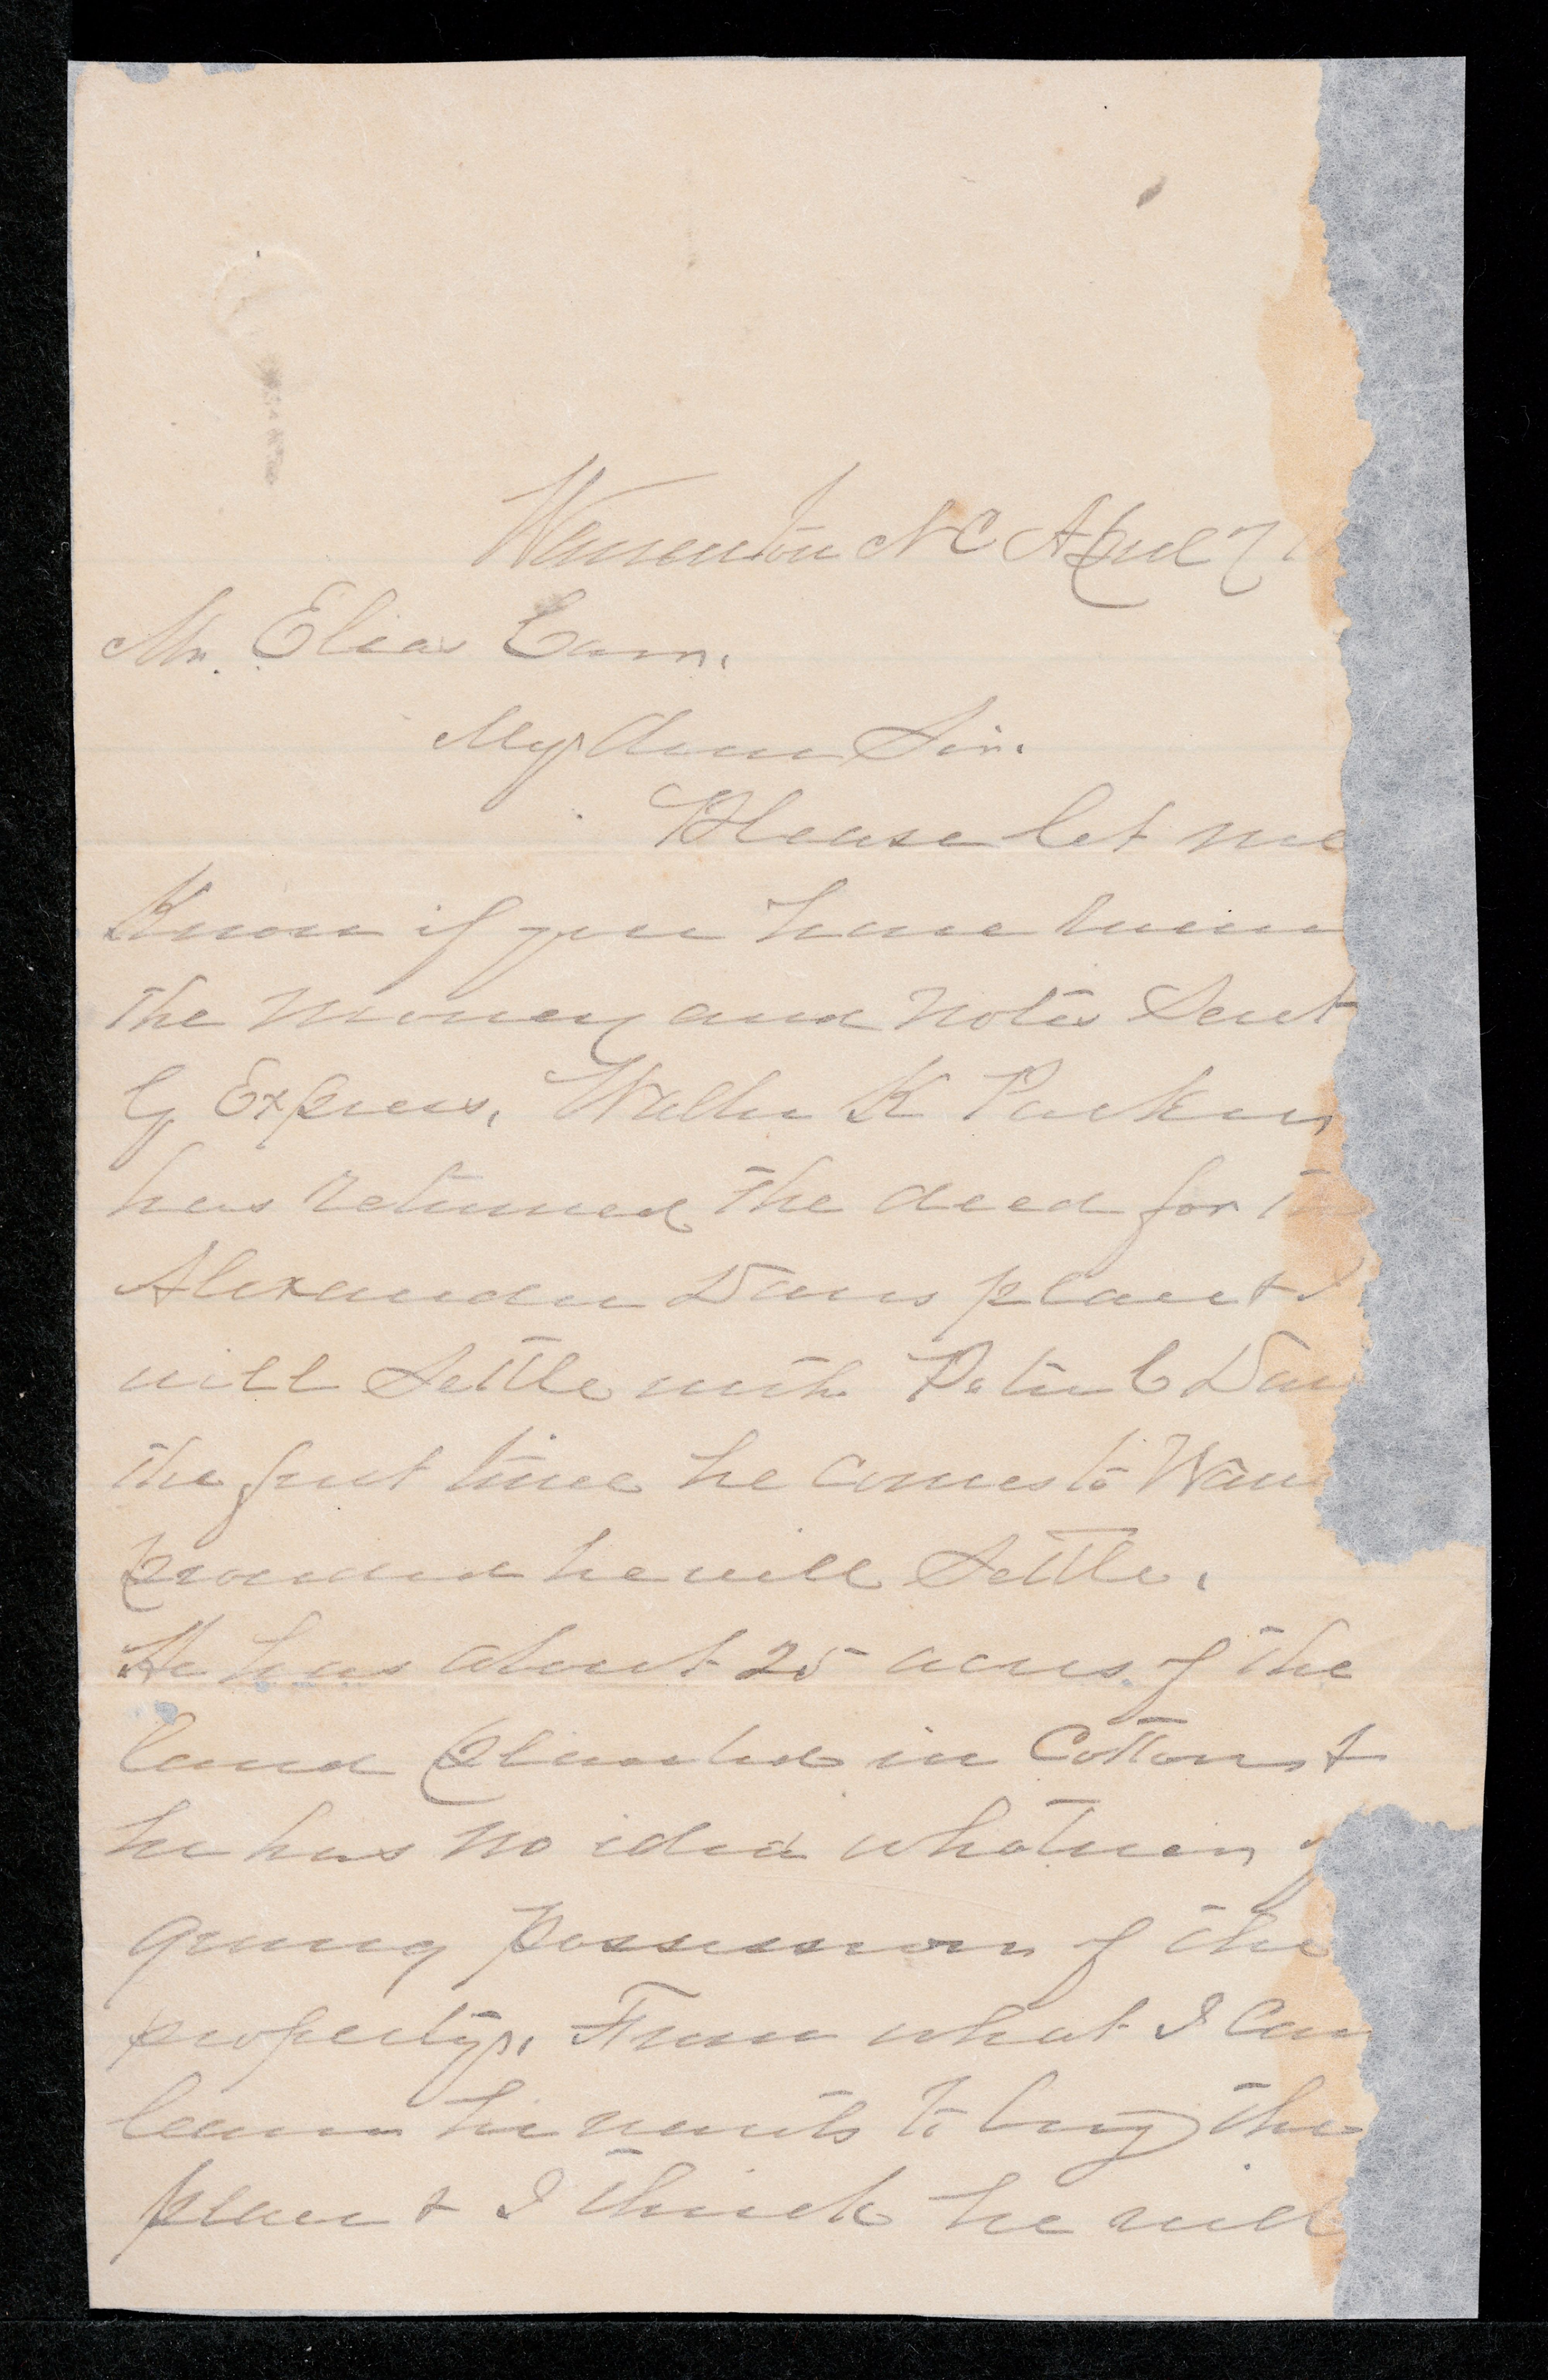 Warrenton N C April 7
Mr. Elias Carr.
My dear Sir.
Please let me
Know if you have
the money and notes Sent
by Express. Walter K Parker
has returned the deed for th
Alexander Davis place & I
will Settle with Peter C Dav
the first time he comes to Warr
provided he will Settle.
He has about 25 acres of the
land planted in Cotton &
he has no idea whatever
giving possession of the
property. From what I can
learn he wants to buy the
place & I think he will